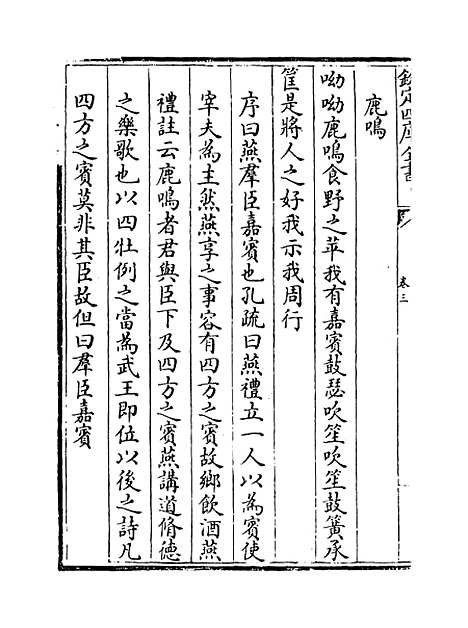 欽定四庫全書
卷三
鹿鳴
呦呦鹿鳴食野之苹我有嘉賓鼓瑟吹笙吹笙鼓簧承
筐是將人之好我示我周行
序曰燕羣臣嘉賓也孔疏曰燕禮立一人以為賓使
宰夫為主然燕享之事容有四方之賓故鄉飲酒燕
禮註云鹿鳴者君與臣下及四方之賓燕講道脩德
之樂歌也以四牡例之當為武王即位以後之詩凡
四方之賓莫非其臣故但曰羣臣嘉賓